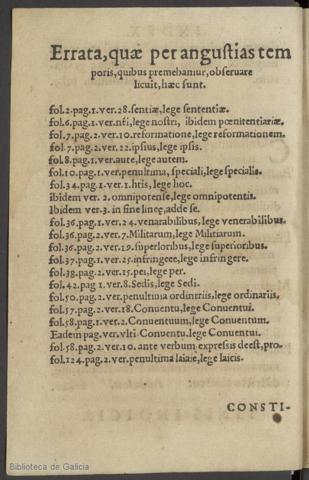 Errata, quæ per angustias tem
poris, quibus premebamur, obseruare
licuit, hæc sunt.
fol.2.pag.1.ver.28.sentiæ, lege sententiæ.
fol.6.pag.1.ver.nři, lege nostri, ibidem pœnitentiariæ.
fol.7.pag.2.ver.10.reformatione, lege reformationem.
fol.7.pag.2.ver.22.ipsius, lege ipsis.
fol.8.pag.1.ver.aute, lege autem.
fol.10.pag.1.ver.penultima, speciali, lege specialis.
fol.34.pag.1.ver.1.htis, lege hoc.
ibidem ver.2.omnipotense, lege omnipotentis.
Ibidem ver.3.in fine lineę, adde se.
fol.36.pag.1.ver.24.venarabilibus, lege venerabilibus.
fol.36.pag.2.ver.7.Militarum, lege Militiarum.
fol.36.pag.2.ver.19.superloribus, lege superioribus.
fol.37.pag.1.ver.25.infringeee, lege infringere.
fol.38.pag.2.ver.15.pei, lege per.
fol.42.pag.1.ver.8.Sedis, lege Sedi.
fol.50.pag.2.ver.penultima ordinriis, lege ordinariis.
fol.57.pag.2.ver.18.Conuentu, lege Conuentui.
fol.58.pag.1.ver.2.Conuentuum, lege Conuentum.
Eadem pag.ver.vlti.Conuentu.lege Conuentui.
fol.58.pag.2.ver.10.ante verbum expressis deest, pro.
fol.124.pag.2.ver.penultima laiaie, lege laicis.
CONSTI-
Biblioteca de Galicia